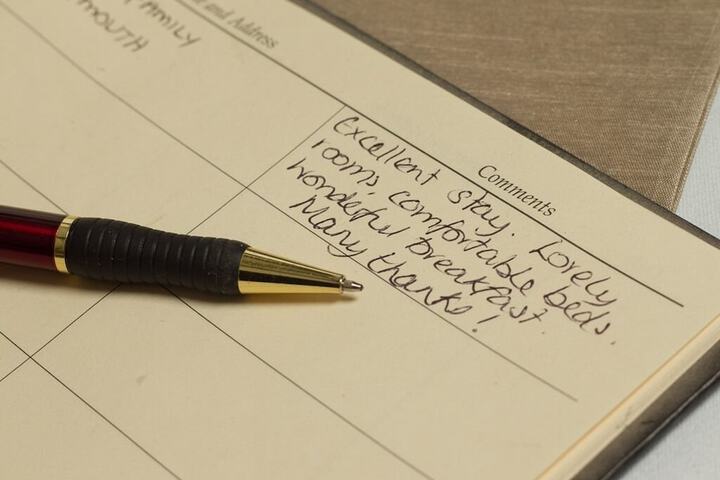 and Address
FAMILY
MOUTH
Comments
Excellent stay. Lovely
rooms, comfortable beds.
Wonderful breakfast.
Many thanks!